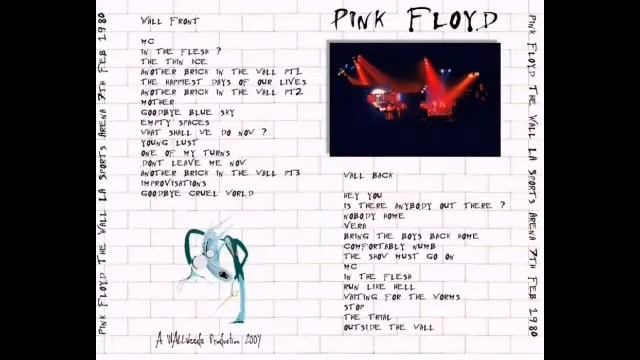 PINK FLOYD THE WALL LA SPORTS ARENA 7TH FEB 1980
WALL FRONT
MC
IN THE FLESH ?
THE THIN ICE
ANOTHER BRICK IN THE WALL PT1
THE HAPPIEST DAYS OF OUR LIVES
ANOTHER BRICK IN THE WALL PT2
MOTHER
GOODBYE BLUE SKY
EMPTY SPACES
WHAT SHALL WE DO NOW ?
YOUNG LUST
ONE OF MY TURNS
DONT LEAVE ME NOW
ANOTHER BRICK IN THE WALL PT3
IMPROVISATIONS
GOODBYE CRUEL WORLD
A WALLweeds Production 2009
PINK FLOYD
WALL BACK
HEY YOU
IS THERE ANYBODY OUT THERE ?
NOBODY HOME
VERA
BRING THE BOYS BACK HOME
COMFORTABLY NUMB
THE SHOW MUST GO ON
MC
IN THE FLESH
RUN LIKE HELL
WAITING FOR THE WORMS
STOP
THE TRIAL
OUTSIDE THE WALL
PINK FLOYD THE WALL LA SPORTS ARENA 7TH FEB 1980